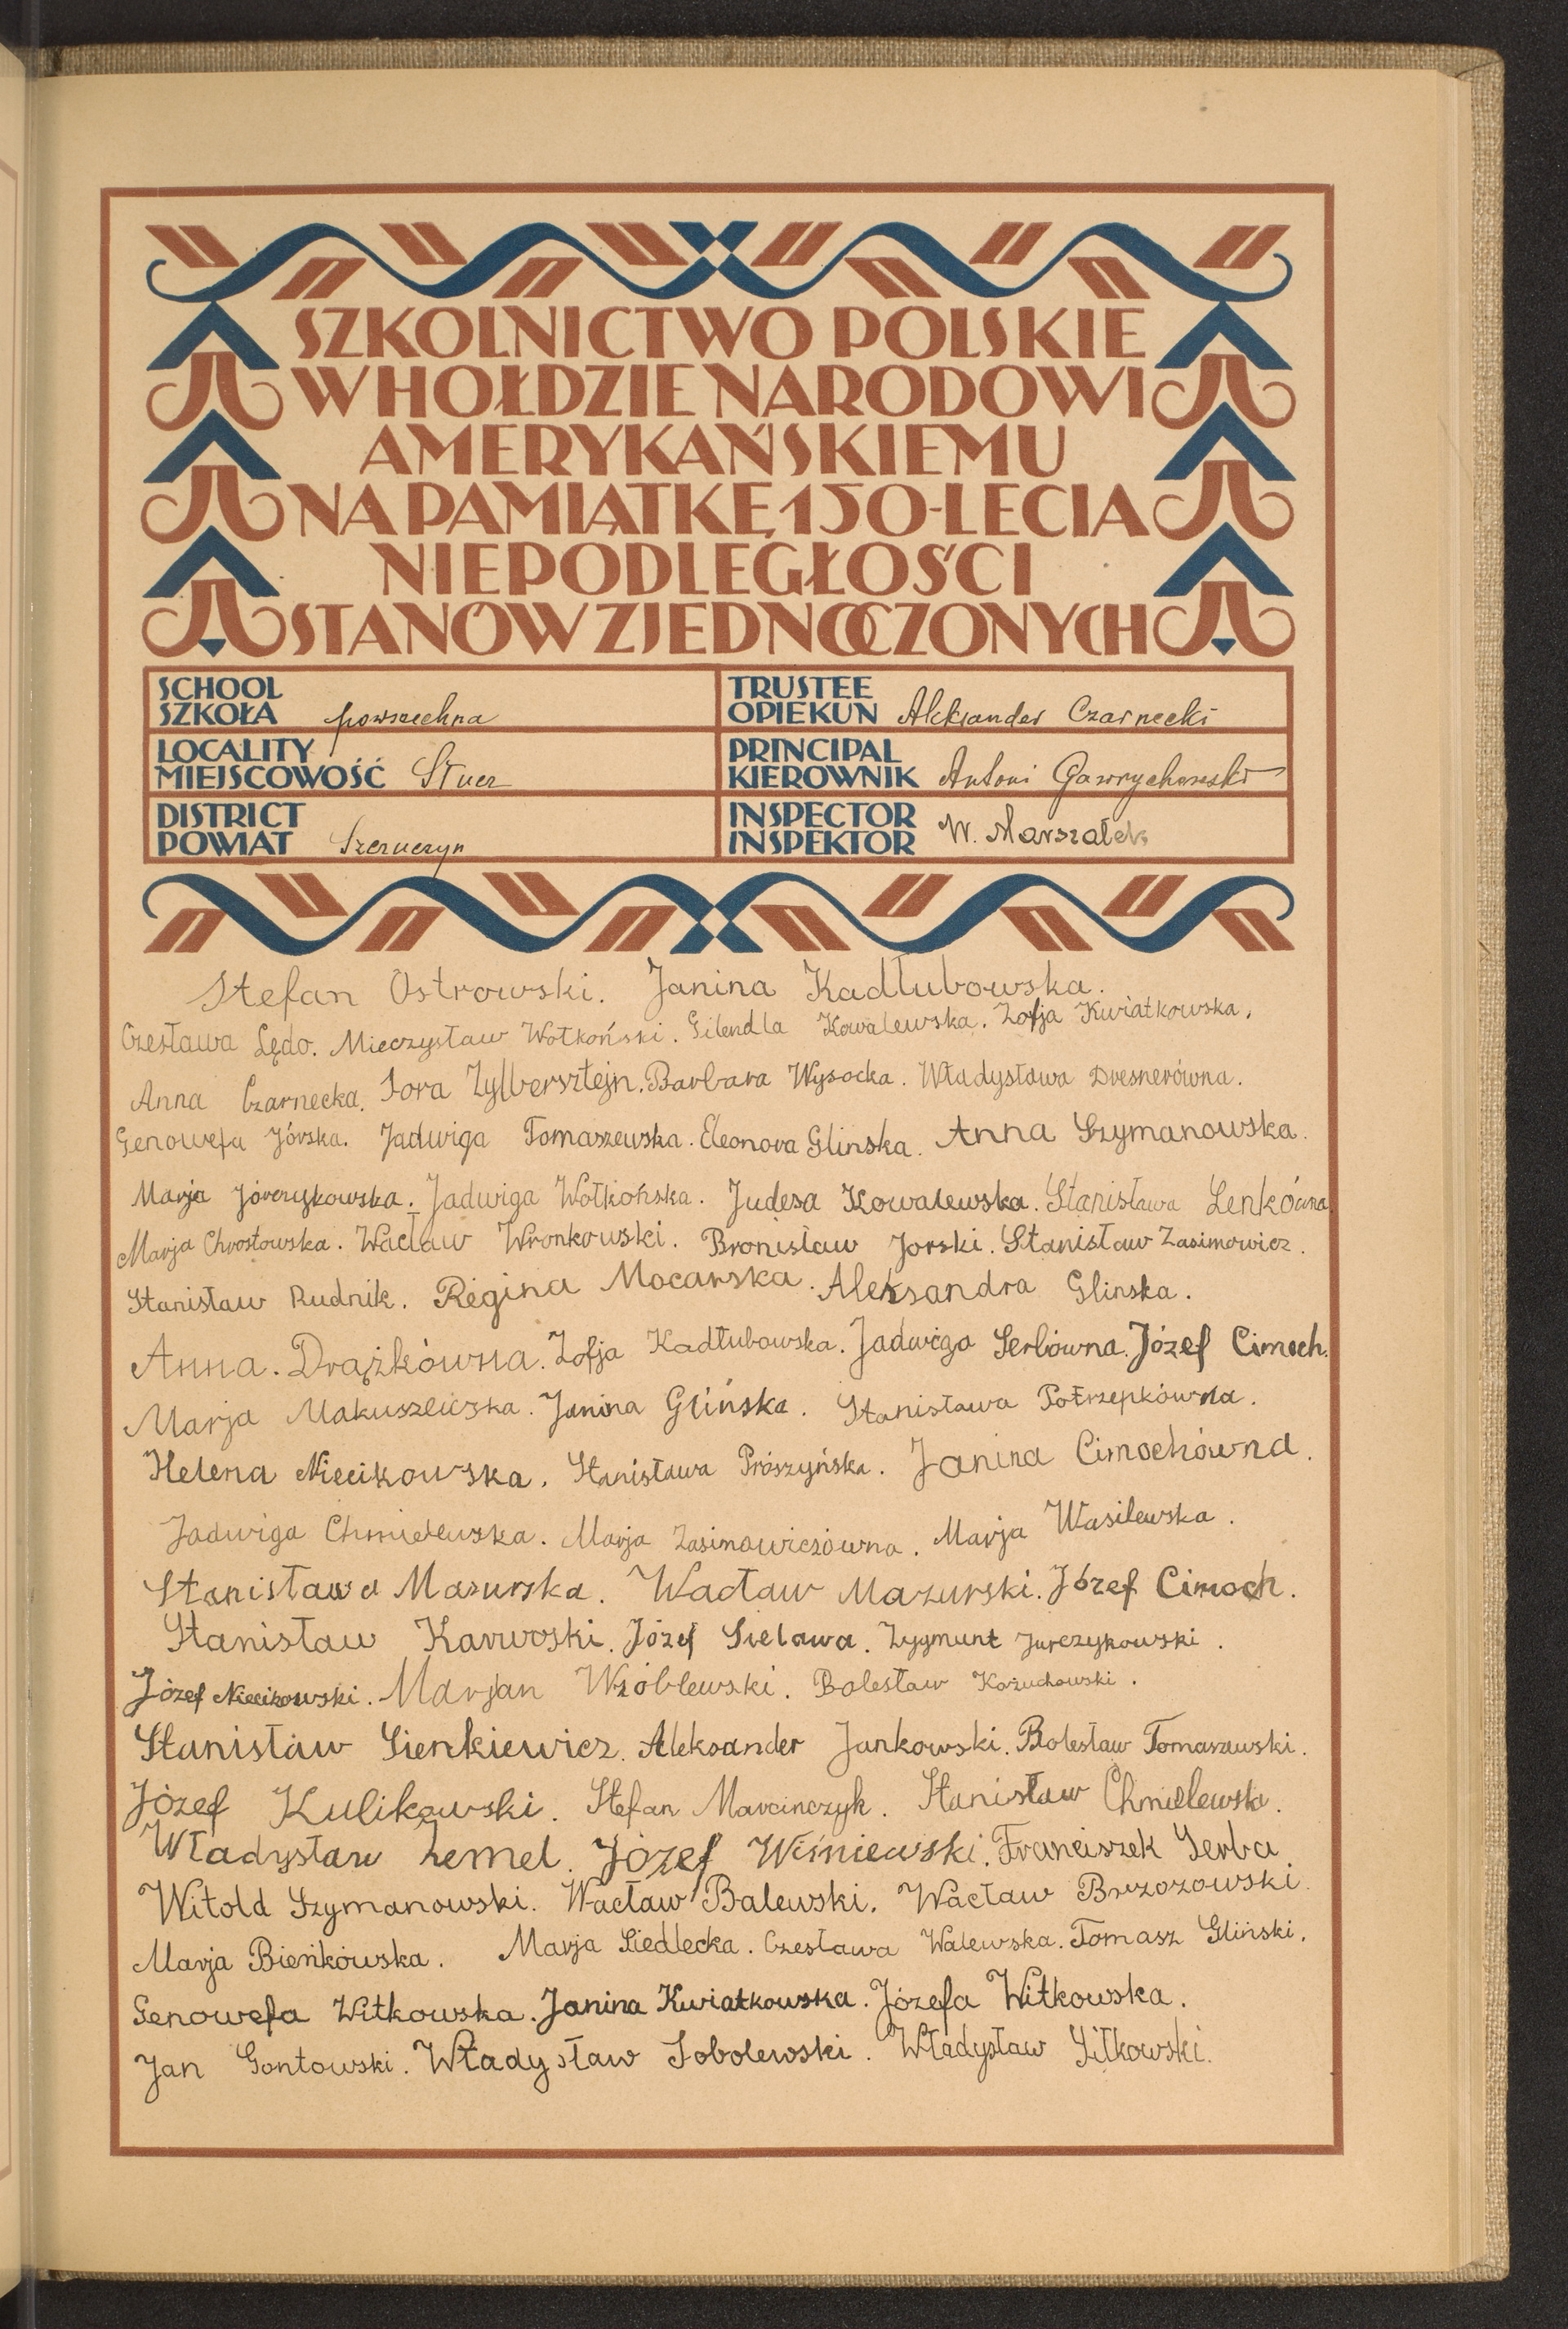 SZKOLNICTWO POLSKIE
W HOŁDZIE NARODOWI
AMERYKAŃSKIEMU
NA PAMIĄTKĘ 150-LECIA
NIEPODLEGŁOŚCI
STANÓW ZJEDNOCZONYCH
SCHOOL
SZKOŁA powszechna
TRUSTEE
OPIEKUN Aleksander Czarnecki
LOCALITY
MIEJSCOWOŚĆ Stucz
PRINCIPAL
KIEROWNIK Antoni Gawrychowski
DISTRICT
POWIAT Szczuczyn
INSPECTOR
INSPEKTOR W. Marszałek
Stefan Ostrowski. Janina Kadłubowska.
Czesława Lędo. Mieczysław Wołkoński. Gilendla Kowalewska. Zofja Kwiatkowska.
Anna Czarnecka. Sora Zylbersztejn. Barbara Wysocka. Władysława Dresnerówna.
Genowefa Jórska. Jadwiga Tomaszewska. Eleonora Glinska. Anna Szymanowska.
Marja Jórczykowska. Jadwiga Wołkońska. Judesa Kowalewska. Stanisława Lenkówna.
Marja Chrostowska. Wacław Wronkowski. Bronisław Jorski. Stanisław Zasimowicz.
Stanisław Rudnik. Regina Mocarska. Aleksandra Glinska.
Anna. Drążkówna. Zofja Kadłubowska. Jadwiga Serbówna. Józef Cimoch.
Marja Makuszewska. Janina Glińska. Stanisława Potrzepkówna.
Helena Niecikowska. Stanisława Prószyńska. Janina Cimochówna.
Jadwiga Chmielewska. Marja Zasimowiczówna. Marja Wasilewska.
Stanisława Mazurska. Wacław Mazurski. Józef Cimoch.
Stanisław Karwoski. Józef Sielawa. Zygmunt Jurczykowski.
Józef Niecikowski. Marjan Wróblewski. Bolesław Kożuchowski.
Stanisław Sienkiewicz. Aleksander Jankowski. Bolesław Tomaszewski.
Józef Kulikowski. Stefan Marcinczyk. Stanisław Chmielewski.
Władysław Remel. Józef Wiśniewski. Franciszek Serba
Witold Szymanowski. Wacław Balewski. Wacław Brzozowski.
Marja Bieńkowska. Marja Siedlecka. Czesława Walewska. Tomasz Gliński.
Genowefa Witkowska. Janina Kwiatkowska. Józefa Witkowska.
Jan Gontowski. Władysław Sobolewski. Władysław Żiłkowski.